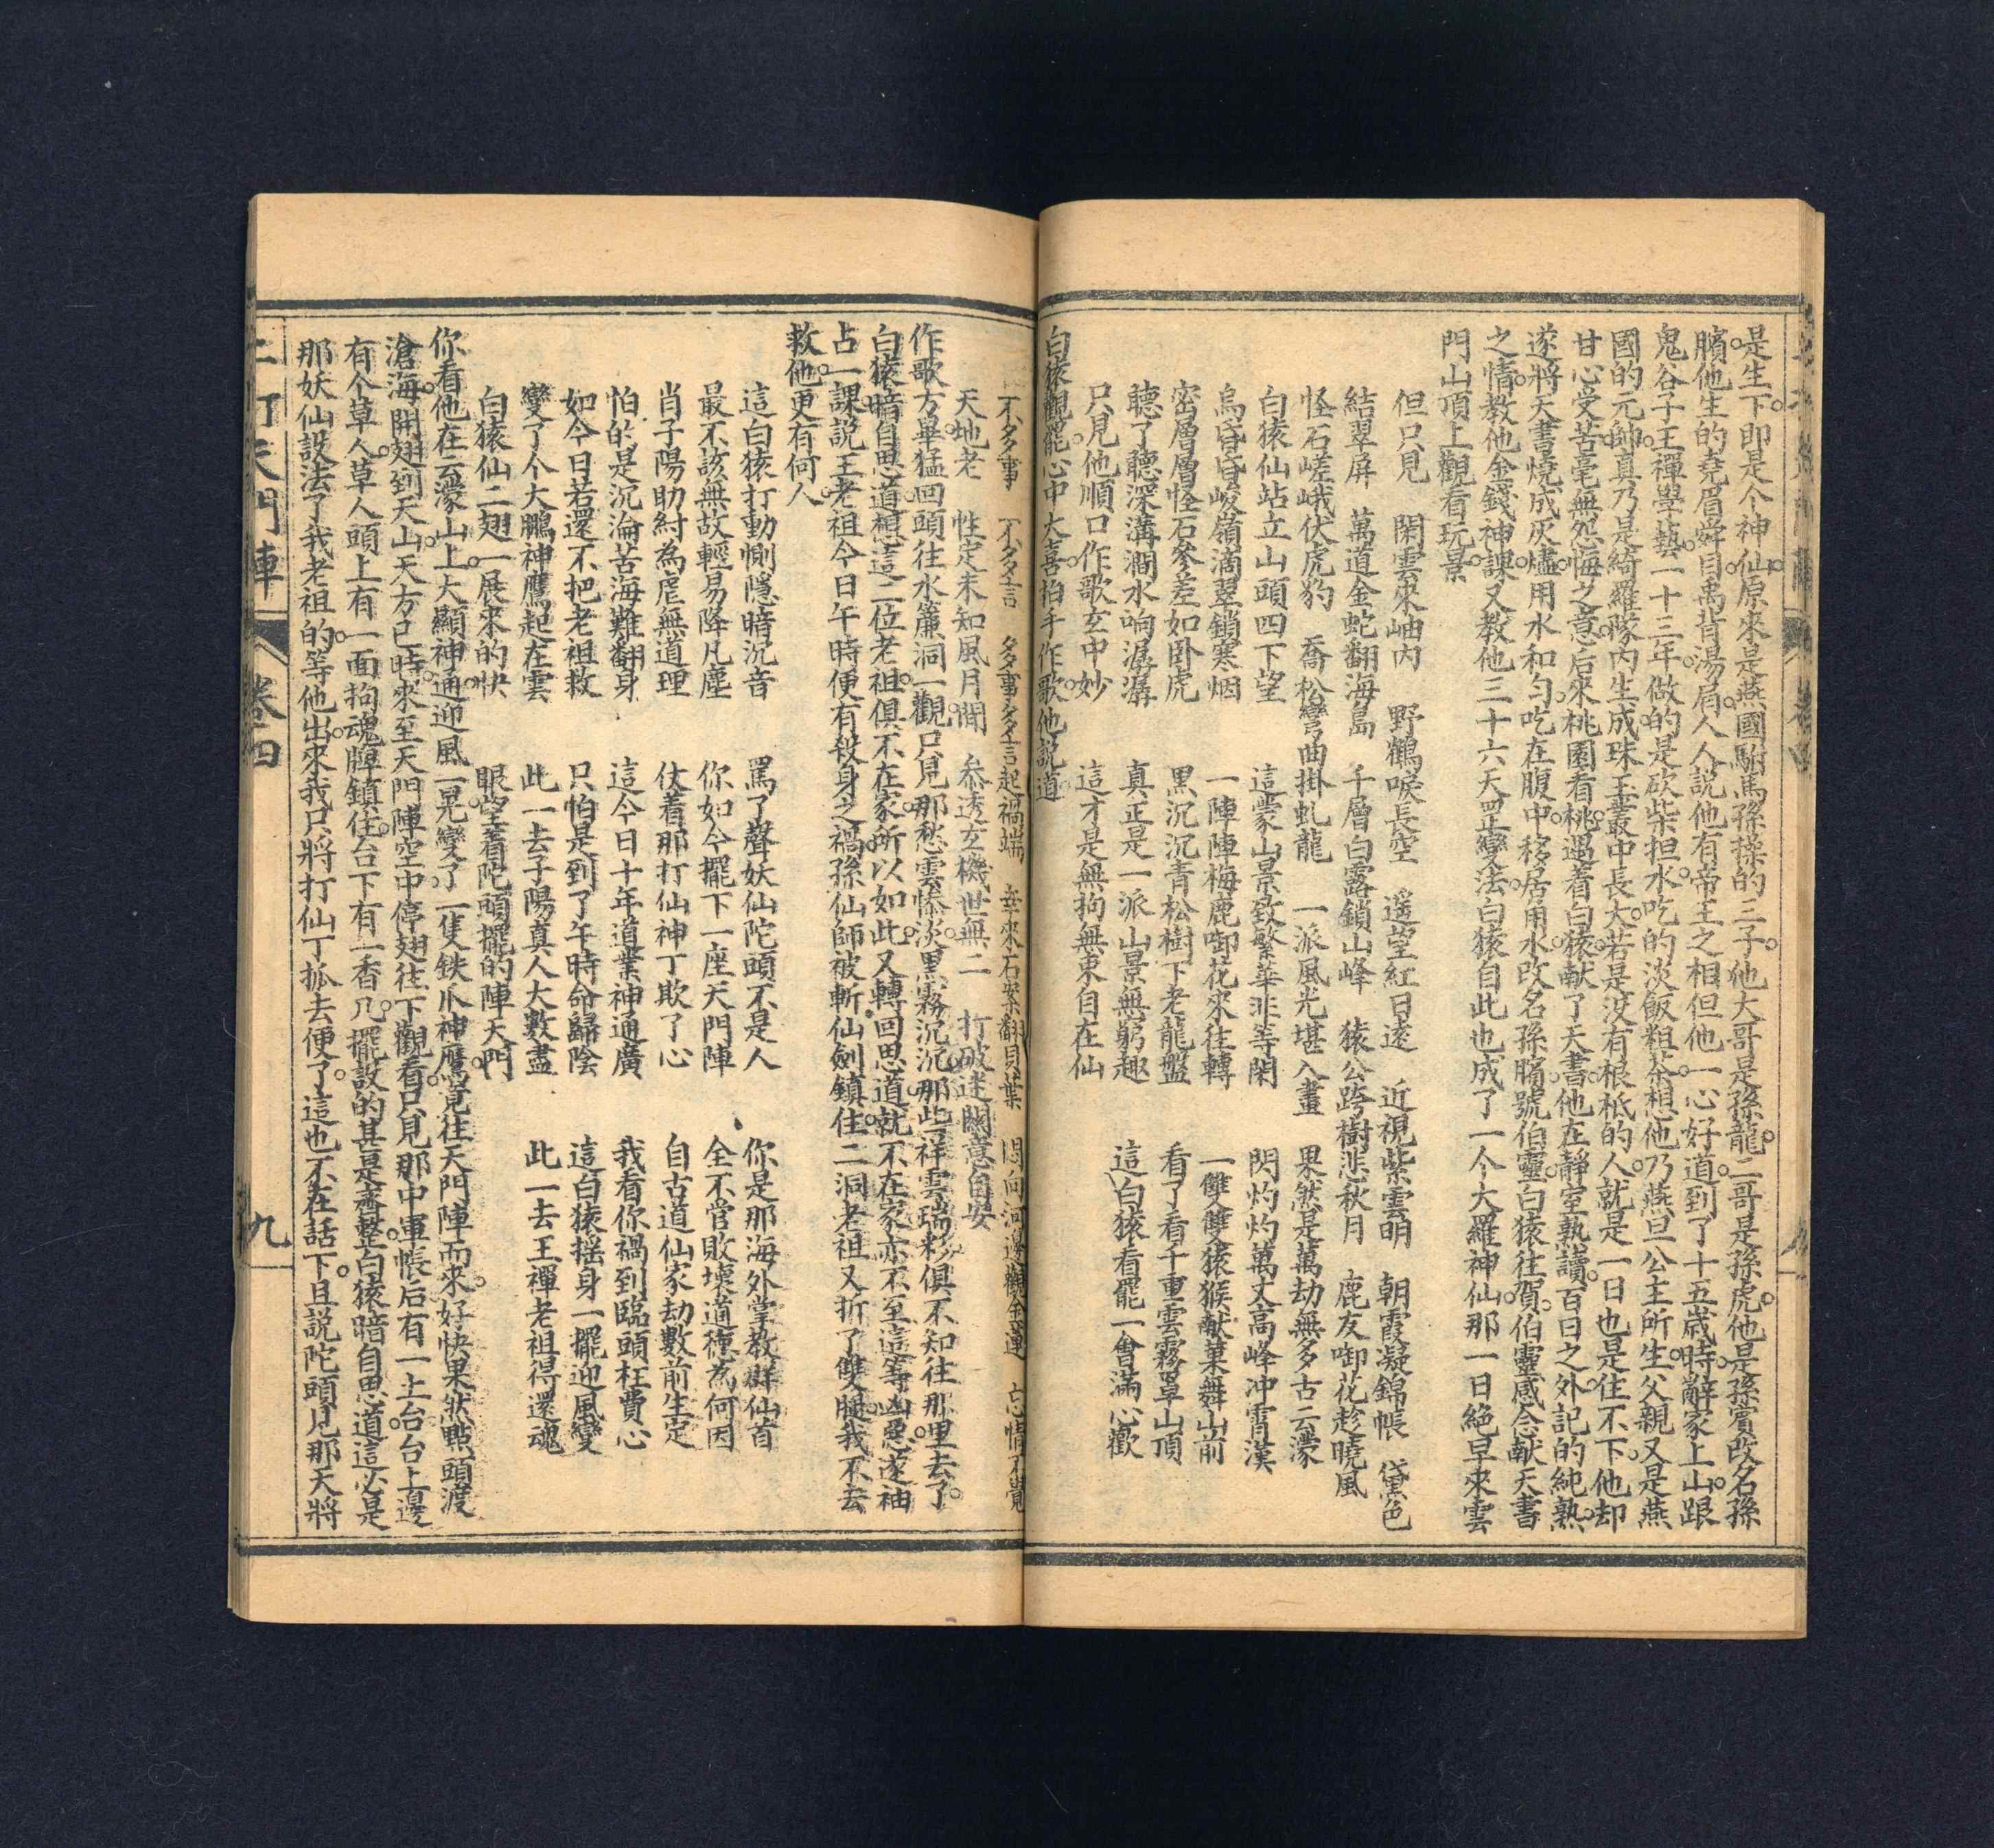 是生下。即是个神仙。原來是燕國駙馬孫操的三子。他大哥是孫龍。二哥是孫虎。他是孫賓改名孫
臏。他生的堯眉舜目。禹背湯肩。人人說他有帝王之相。但他一心好道。到了十五歲時。辭家上山。跟
鬼谷子王禪學藝。一十三年。做的是砍柴担水。吃的淡飯粗茶。想他乃燕旦公主所生。父親又是燕
國的元帥。真乃是綺羅隊內生成。珠玉叢中長大。若是沒有根柢的人。就是一日也是住不下。他却
甘心受苦。毫無怨悔之意。后來桃園看桃。遇着白猿献了天書。他在靜室熟讀。百日之外。記的純熟。
遂將天書燒成灰燼。用水和勻。吃在腹中。移居甪水。改名孫臏。號伯靈。白猿往賀。伯靈感念献天書
之情。教他金錢神課。又教他三十六天罡變法。白猿自此也成了一个大羅神仙。那一日絕早來雲
門山頂上觀看玩景。
但只見　閑雲來岫內　野鶴唳長空　遙望紅日遠　近視紫雲明　朝霞凝錦帳　黛色
結翠屏　萬道金蛇翻海島　千層白露鎖山峰　猿公跨樹悲秋月　鹿友啣花趁曉風
怪石嵯峨伏虎豹　喬松彎曲掛虬龍　一派風光堪入畫　果然是萬劫無多古云濛
白猿仙站立山頭四下望　這濛山景致繁華非等閑　閃灼灼萬丈高峰冲霄漢
烏昏昏峻嶺滴翠鎖寒烟　一陣陣梅鹿啣花來往轉　一雙雙猿猴献菓舞山前
密層層怪石參差如卧虎　黑沉沉青松樹下老龍盤　看了看千重雲霧罩山頂
聽了聽深溝澗水响潺潺　真正是一派山景無窮趣　這白猿看罷一會滿心歡
只見他順口作歌玄中妙　這才是無拘無束自在仙
白猿觀罷。心中大喜。拍手作歌。他說道
不多事　不多言　多事多言起禍端　幸來石案翻貝葉　閒向河邊觀金蓮　忘情了覺
天地老　性定未知風月閒　叅透玄機世無二　打破迷關意自安
作歌方畢。猛回頭往水簾洞一觀。只見那愁雲慘淡。黑霧沉沉。那些祥雲瑞彩。俱不知往那里去了。
白猿暗自思道。想這二位老祖。俱不在家。所以如此。又轉回思道。就不在家。亦不至這等凶惡。遂袖
占一課。說王老祖今日午時便有殺身之禍。孫仙師被斬仙劍鎮住。二洞老祖又折了雙腿。我不去
救他。更有何人。
這白猿打動惻隱暗沉音　罵了聲妖仙陀頭不是人　你是那海外掌教群仙首
最不該無故輕易降凡塵　你如今擺下一座天門陣　全不管敗壞道德為何因
肖子陽助紂為虐無道理　仗着那打仙神丁欺了心　自古道仙家劫數前生定
怕的是沉淪苦海難翻身　這今日十年道業神通廣　我看你禍到臨頭枉費心
如今日若還不把老祖救　只怕是到了午時命歸陰　這白猿搖身一擺迎風變
變了个大鵬神鷹起在雲　此一去子陽真人大數盡　此一去王禪老祖得還魂
白猿仙二翅一展來的快　眼望着陀頭擺的陣天門
你看他在云濛山上。大顯神通。迎風一晃。變了一隻鉄爪神鷹。竟往天門陣而來。好快。果然點頭渡
滄海。開翅到天山。天方巳時。來至天門陣空中。停翅往下觀看。只見那中軍帳后有一土台。台上邊
有个草人。草人頭上有一面拘魂牌鎮住。台下有一香几。擺設的甚是齊整。白猿暗自思道。這必是
那妖仙設法了我老祖的。等他出來。我只將打仙丁抓去便了。這也不在話下。且說陀頭見那天將
二打天門陣　卷四　九